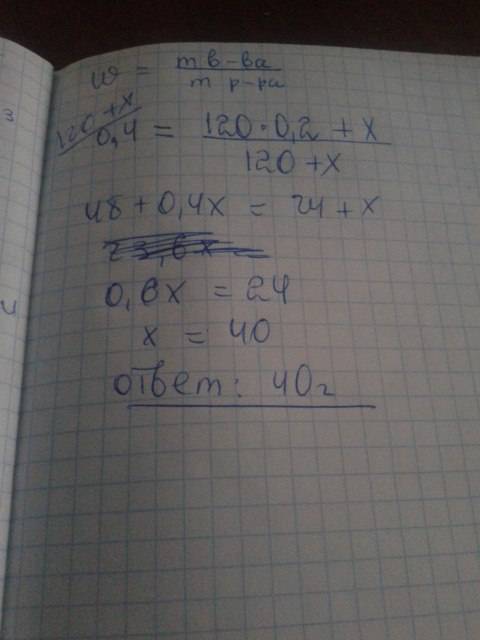 w = m в-ва / m р-ра
120+x / 0,4 = 120·0,2 + x / 120+x
48 + 0,4x = 24 + x
0,6x = 24
x = 40
ответ: 40г